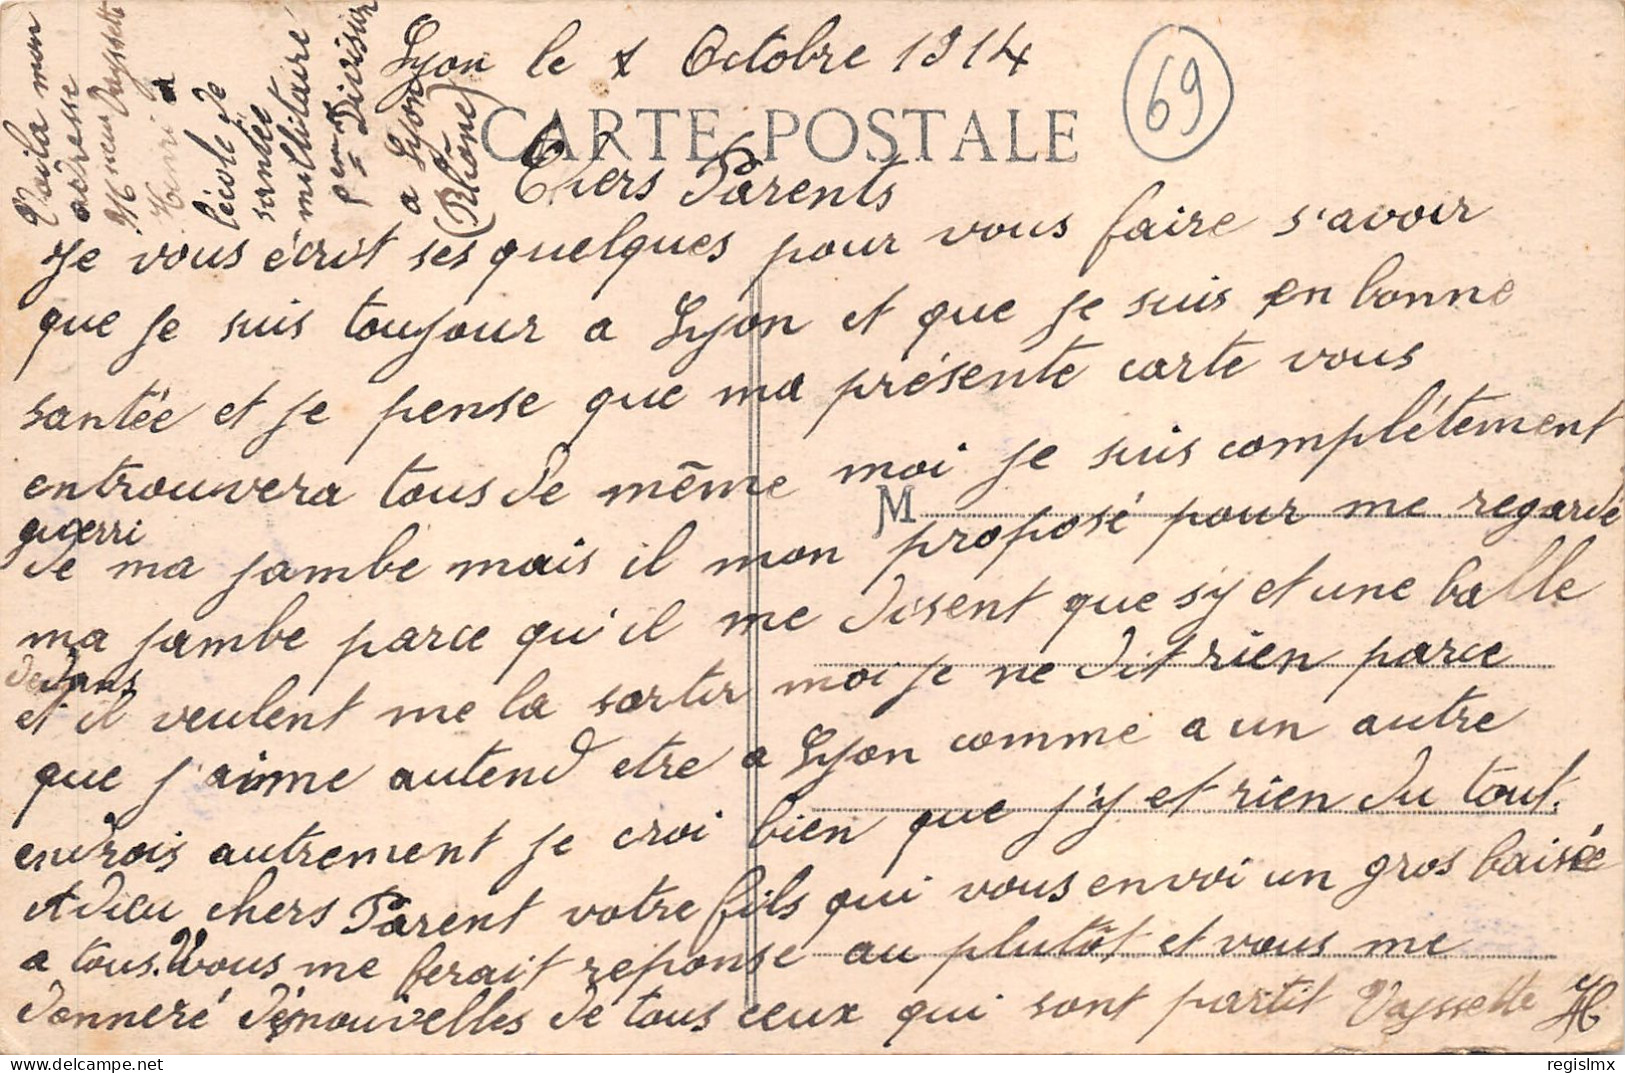 Lyon le 1 Octobre 1914
69
CARTE POSTALE
Chers Parents
Je vous écrit ses quelques pour vous faire s'avoir
que je suis toujour a Lyon et que je suis en bonne
santée et je pense que ma présente carte vous
entrouvera tous de même moi je suis complétement
guerri
de ma jambe mais il mon proposé pour me regardé
M
ma jambe parce qu'il me disent que s'y et une balle
dedans
et il veulent me la sortir moi je ne dit rien parce
que j'aime autend etre a Lyon comme a un autre
endrois autrement je croi bien que j'y et rien du tout.
Adieu chers Parent votre fils qui vous envoi un gros baisée
a tous. Vous me ferait reponse au plutôt et vous me
donneré dénouvelles de tous ceux qui sont partit Vayssette H
Voila mon
adresse
Vayssette
Henri a
lécole de
santée
militairé
Division
a Lyon
(Rhône)
delcampe.net
regislmx